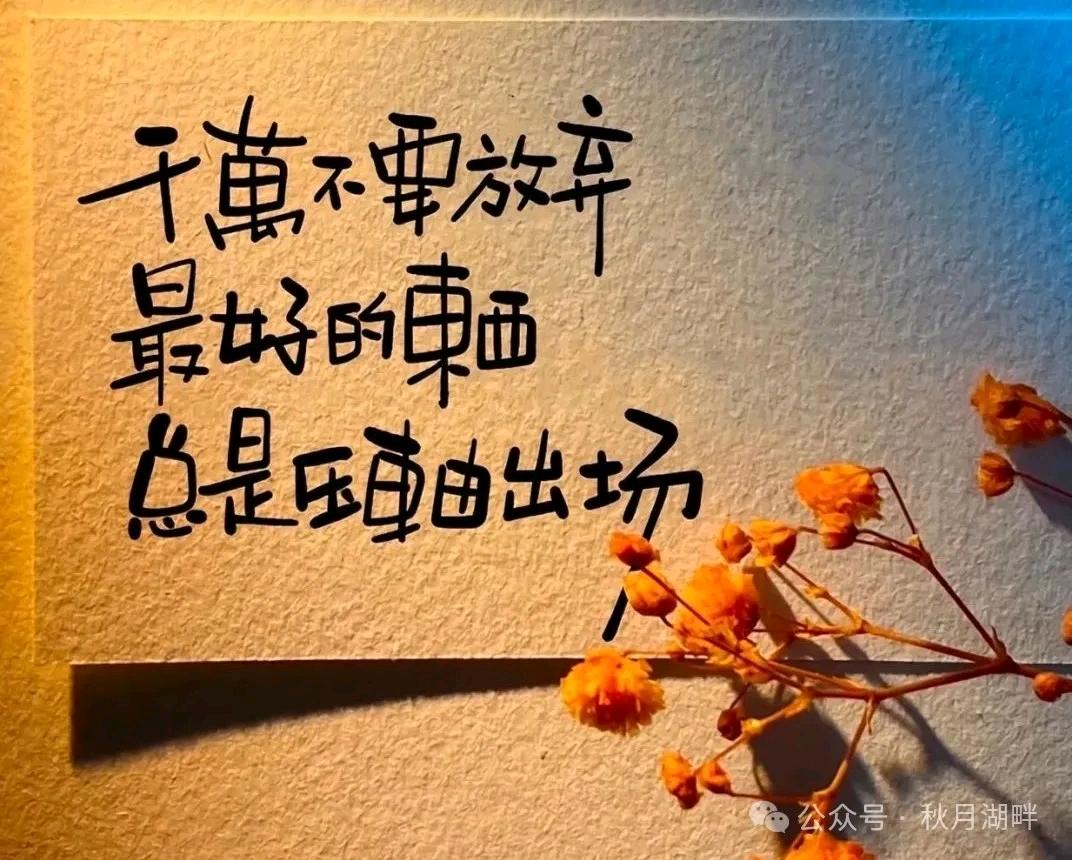 千萬不要放弃
最好的東西
总是压軸出场
公众号·秋月湖畔